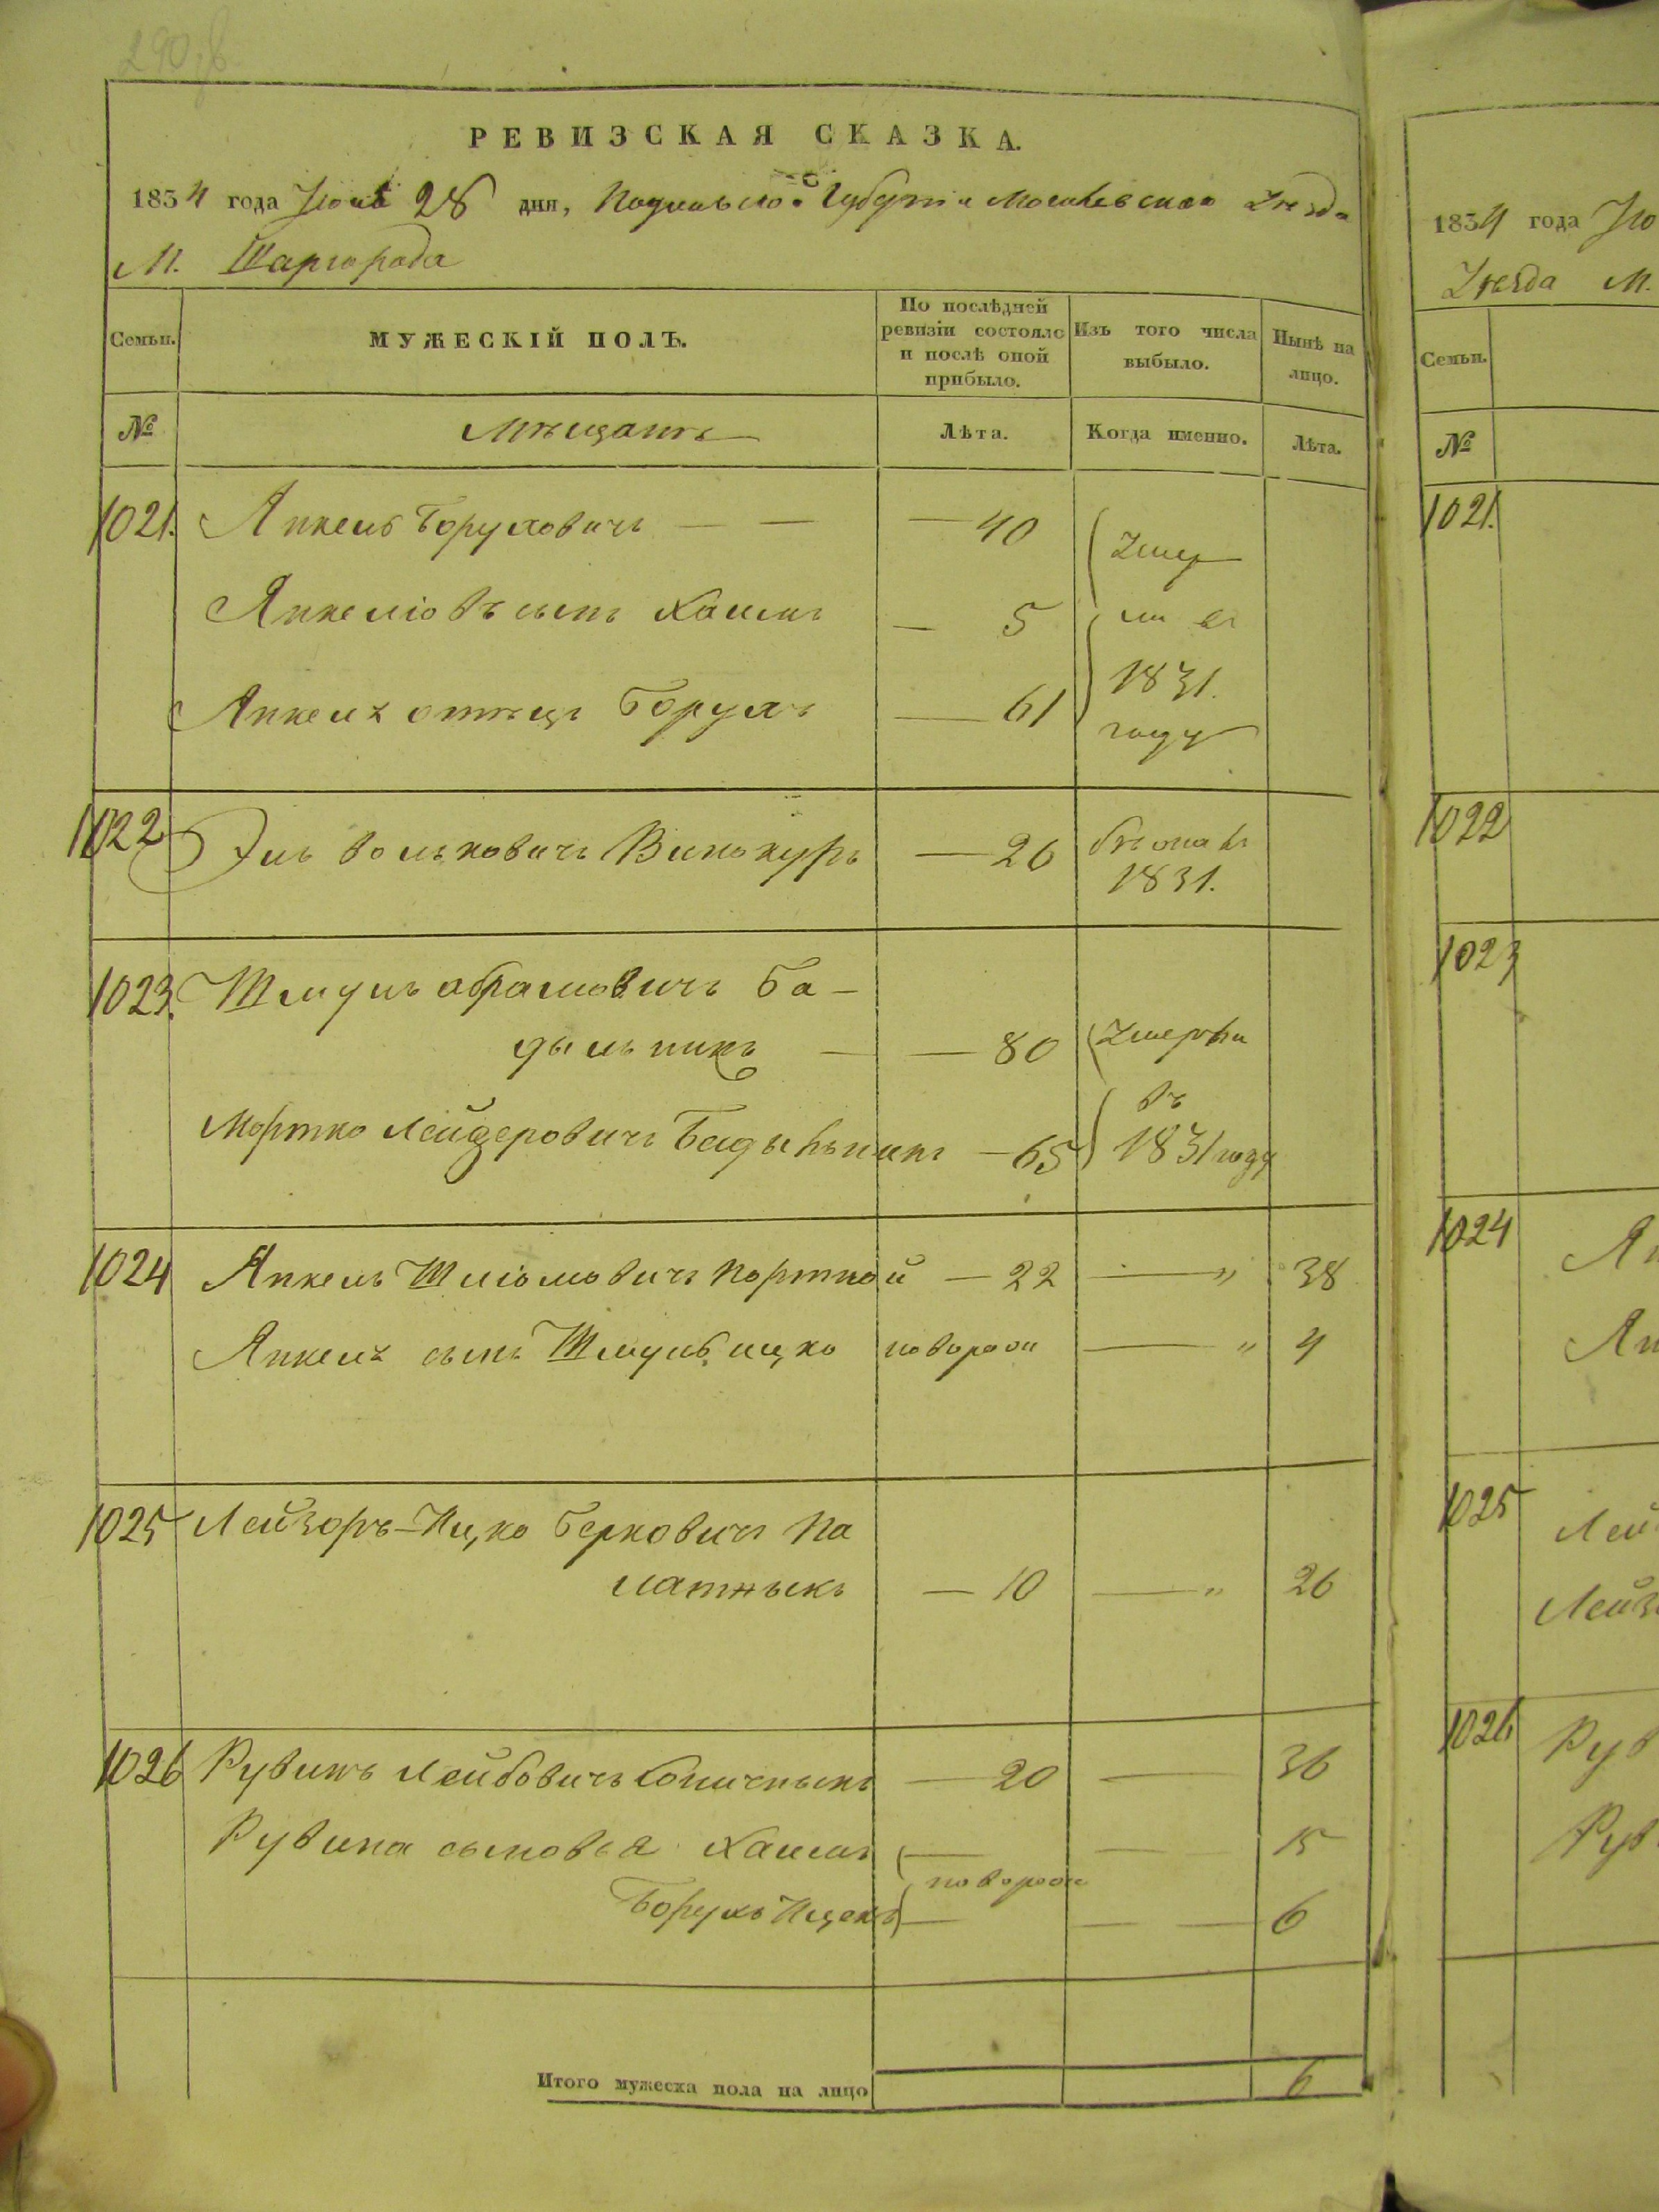 290 об
РЕВИЗСКАЯ СКАЗКА.
1834 года Июня 28 дня, Подольской Губерніи Могилевскаго Уезда
М. Шаргорода
Семьи.
МУЖЕСКІЙ ПОЛЪ.
По послѣдней ревизіи состояло и послѣ оной прибыло.
Изъ того числа выбыло.
Нынѣ на лицо.
№
Мѣщане
Лѣта.
Когда именно.
Лѣта.
1021. Янкель Боруховичъ — — — 40 Умер
Янкеліовъ сынъ Хаимъ — 5 ли въ
Янкеля отецъ Борухъ — 61 1831.
году
1022 Эль Вольковичъ Винокуръ — 26 бѣжалъ
1831.
1023. Шмуль Абрамовичъ Ба-
дыльникъ — — 80 Умерли
въ
Мортко Лейзеровичъ Бадыльникъ — 65 1831 году
1024 Янкель Шліомовичъ Портной — 22 — " 38
Янкеля сынъ Шмуль Ицко новорож — " 4
1025 Лейзоръ-Ицко Берковичъ Па
латныкъ — 10 — " 26
1026 Рувинъ Лейбовичъ — 20 — 36
Рувина сыновья Хаимъ — — 15
новорож
Борухъ Ицекъ — — — 6
Итого мужеска пола на лицо 6
1834 года Ию
Уезда М.
Семьи.
№
1021.
1022
1023
1024 Ян
Ян
1025 Лей
Лейз
1026 Рув
Рув